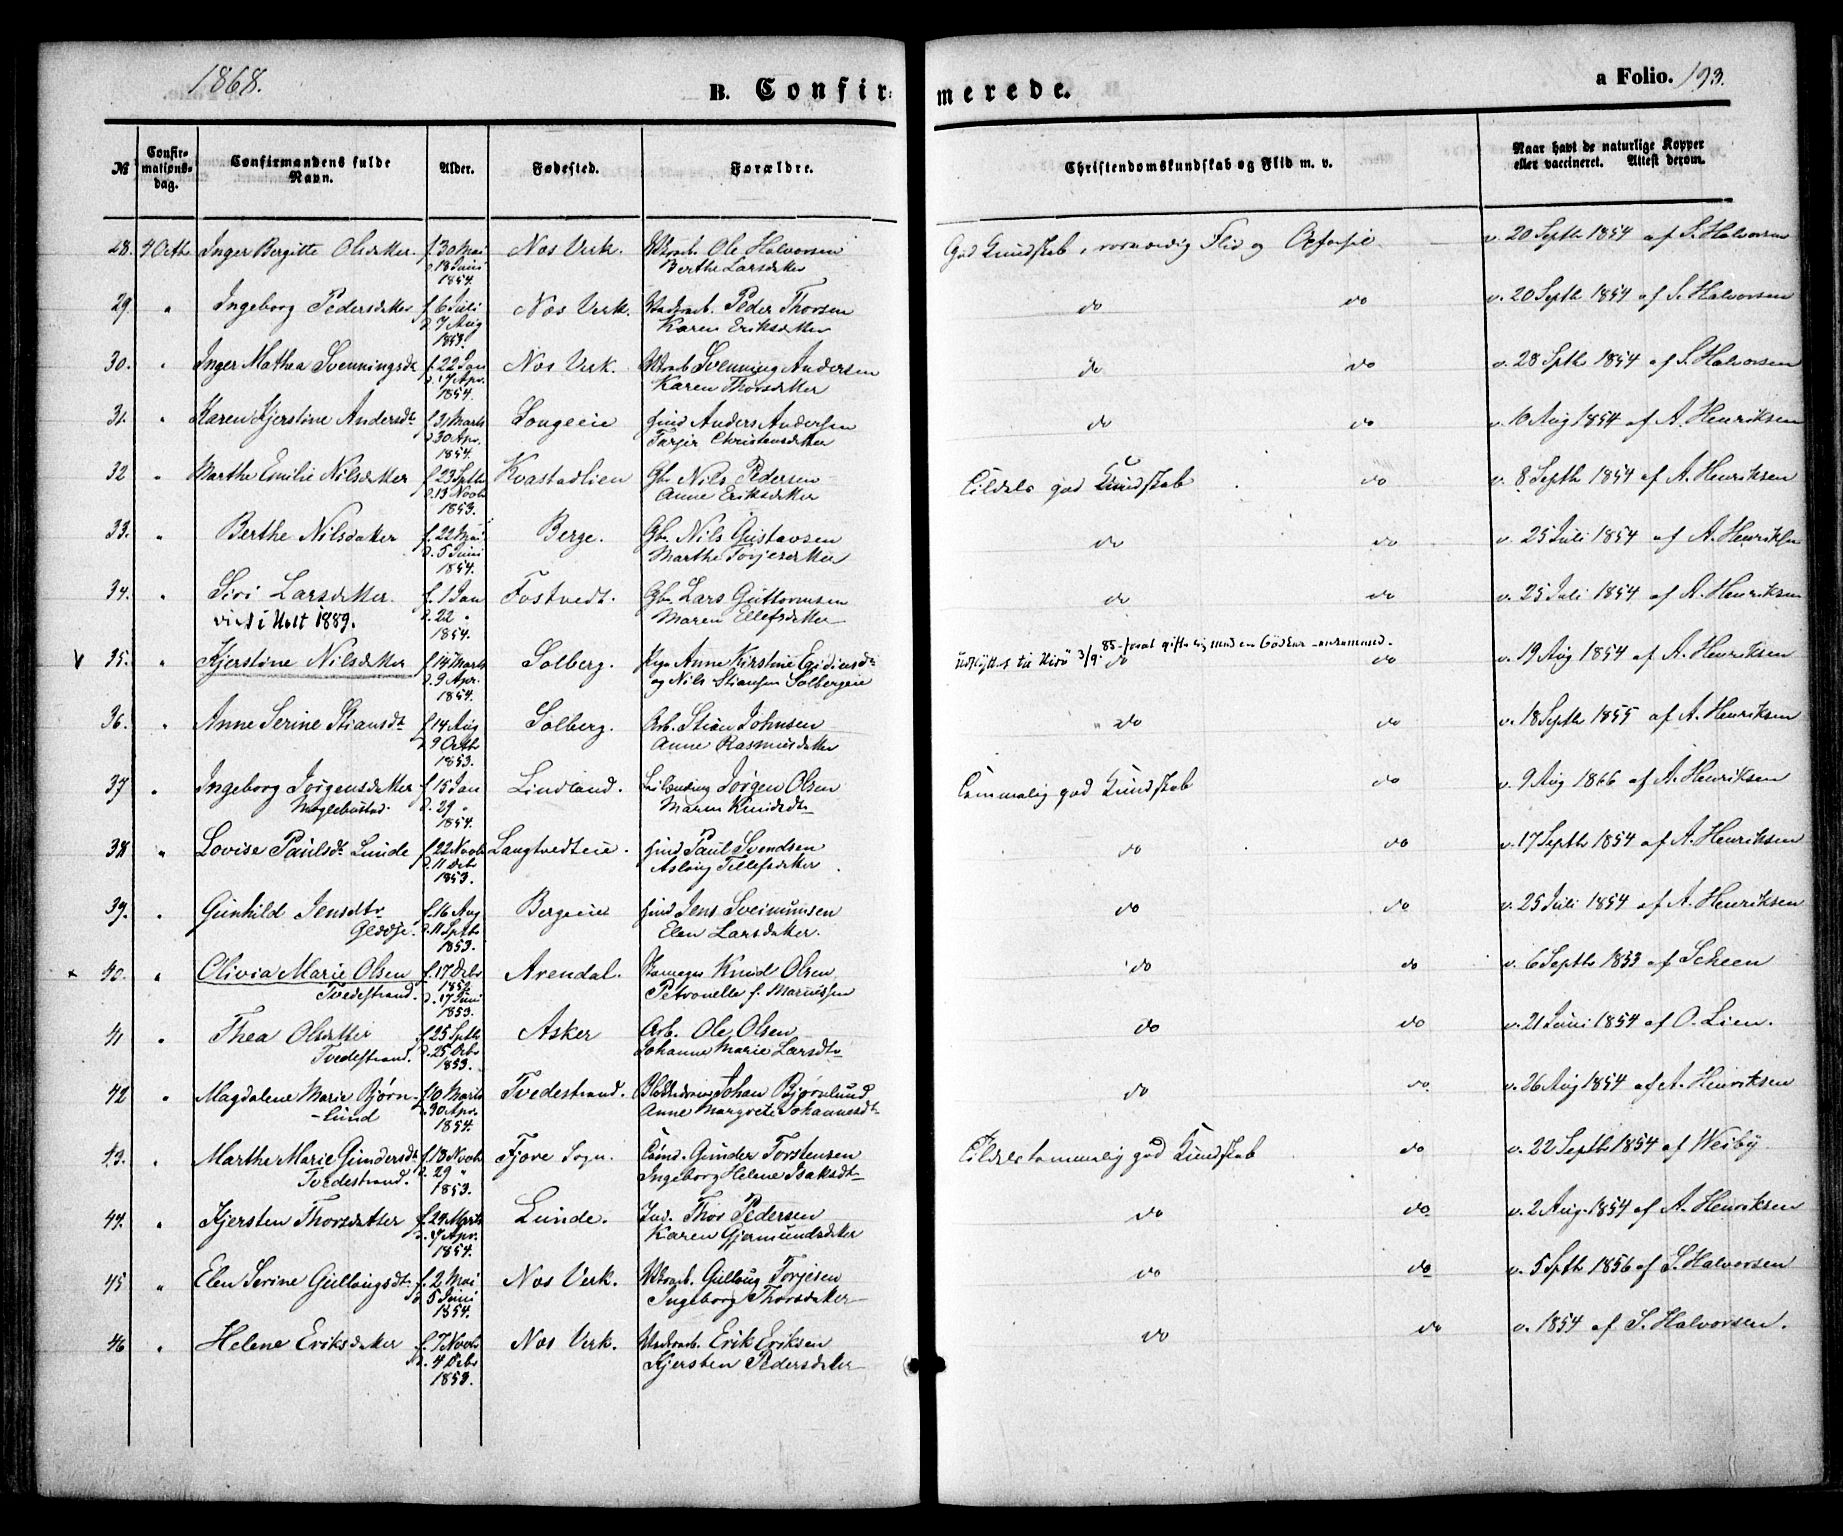 1868.
B. Confir-
merede.
a Folio. 193.
№
Confir-
mations-
dag.
Confirmandens fulde
Navn.
Alder.
Fødested.
Forældre.
Christendomskundskab og Flid m. v.
Naar havt de naturlige Kopper
eller vaccineret. Attest derom.
28. 4 Octb Inger Bergitte Olsdatter. f. 30 Mai Næs Verk. Ole Halvorsen God Kundskab, Flid og v. 20 Septb 1854 af S. Halvorsen
d. 18 Juni Berthe Larsdatter
1854.
29. " Ingeborg Pedersdatter f. 6 Juli Næs Verk. Peder Thorsen do do v. 20 Septb 1854 af S. Halvorsen
d. 7 Aug Karen Eriksdatter
1853.
30. " Inger Mathea Svenningsdt f. 22 Jan Næs Verk. Svenning Andersen do do v. 28 Sptb 1854 af S. Halvorsen
d. 17 Apr. Karen Thorsdatter
1854.
31. " Karen Kjerstine Andersdt f. 31 Marts Songeeie Hmd Anders Andersen do do v. 10 Aug 1854 af A. Henriksen
d. 30 Apr. Christensdatter
1854.
32 " Marthe Emilie Nilsdatter f. 23 Sptb Kvastadlien Gbr Nils Pedersen Tildels god Kundskab do v. 8 Septb 1854 af A. Henriksen
d. 13 Novb Anne Eriksdatter
1853.
33. " Berthe Nilsdatter f. 22 Mai Berge. Gbr. Nils Gustavsen do do v. 25 Juli 1854 af A. Henriksen
d. 5 Juni Marthe Torjesdatter
1854.
34. " Siri Larsdatter. f. 1 Jan Fostvedt. Gbr Lars Guttormsen do do v. 25 Juli 1854 af A. Henriksen
viet i Holt 1889. d. 22 " Maren Ellefsdatter
1854.
udflyttet til 3/9 85
V 35. " Kjerstine Nilsdatter f. 14 Marts Solberg. Pige Anne Kirstine do do v. 19 Aug 1854 af A. Henriksen
d. 9 Apr. og Nils Stiansen Solbergeie
1854.
36. " Anne Serine Stiansdt f. 14 Aug Solberg. Arb. Stian Johnsen do do v. 18 Septb 1855 af A. Henriksen
d. 9 Octb Anne Rasmusdatter
1853.
37 " Ingeborg Jørgensdatter f. 15 Jan Lindland. Jørgen Olsen Temmelig god Kundskab do v. 9 Aug 1866 af A. Henriksen
Møglebustad d. 29 " Maren Knudsdt
1854.
38 " Lovise Paulsdt Lunde f. 22 Novb Langtvedteie. Hmd Paul Svendsen do do v. 17 Septb 1854 af A. Henriksen
d. 11 Debr Aslaug Tellefsdatter
1853.
39. " Gunhild Jensdtr f. 16 Aug Bergeeie Hmd Jens Sveinunsen do do v. 25 Juli 1854 af A. Henriksen
d. 11 Sptb Elen Larsdatter.
1853.
x 40. " Olivia Marie Olsen f. 17 Debr Arendal. Knud Olsen do do v. 6 Septb 1853 af Scheen
Tvedestrand. 1852 Petronelle f. Mariussen
d. 17 Juni
1853.
41 " Thea Olsdatter f. 25 Sptb Asker Arb. Ole Olsen do do v. 21 Juni 1854 af O. Lien.
Tvedestrand. d. 25 Debr Johanne Marie Larsdt
1853.
42 " Magdalene Marie Bjørn- f. 10 Marts Tvedestrand. Johan Bjørnlund do do v. 26 Aug 1854 af A. Henriksen
-lund d. 30 Apr. Anne Margrete Johannesdt
1854.
43. " Marthe Marie Gundersdt f. 13 Novb Fjære Sogn. Gunder Torstensen Tildels temmelig god Kundskab do v. 22 Septb 1854 af Wesby
Tvedestrand. d. 29 " Ingeborg Helene Isaksdt
1853.
44. " Kjersten Thorsdatter f. 29 Marts Lunde. Ind. Thor Pedersen do do v. 2 Aug. 1854 af A. Henriksen
d. 17 Apr. Karen Gjermundsdatter
1854.
45 " Elen Serine Gullaugsdt. f. 2 Mai Næs Verk. Gullaug Torjesen do do v. 5 Sptb 1856 af S. Halvorsen
d. 5 Juni Ingeborg Thorsdatter
1854.
46 " Helene Eriksdatter f. 7 Novb Næs Verk. Erik Eriksen do do v. 1854 af S. Halvorsen.
d. 4 Debr Kjersten Pedersdatter
1853.